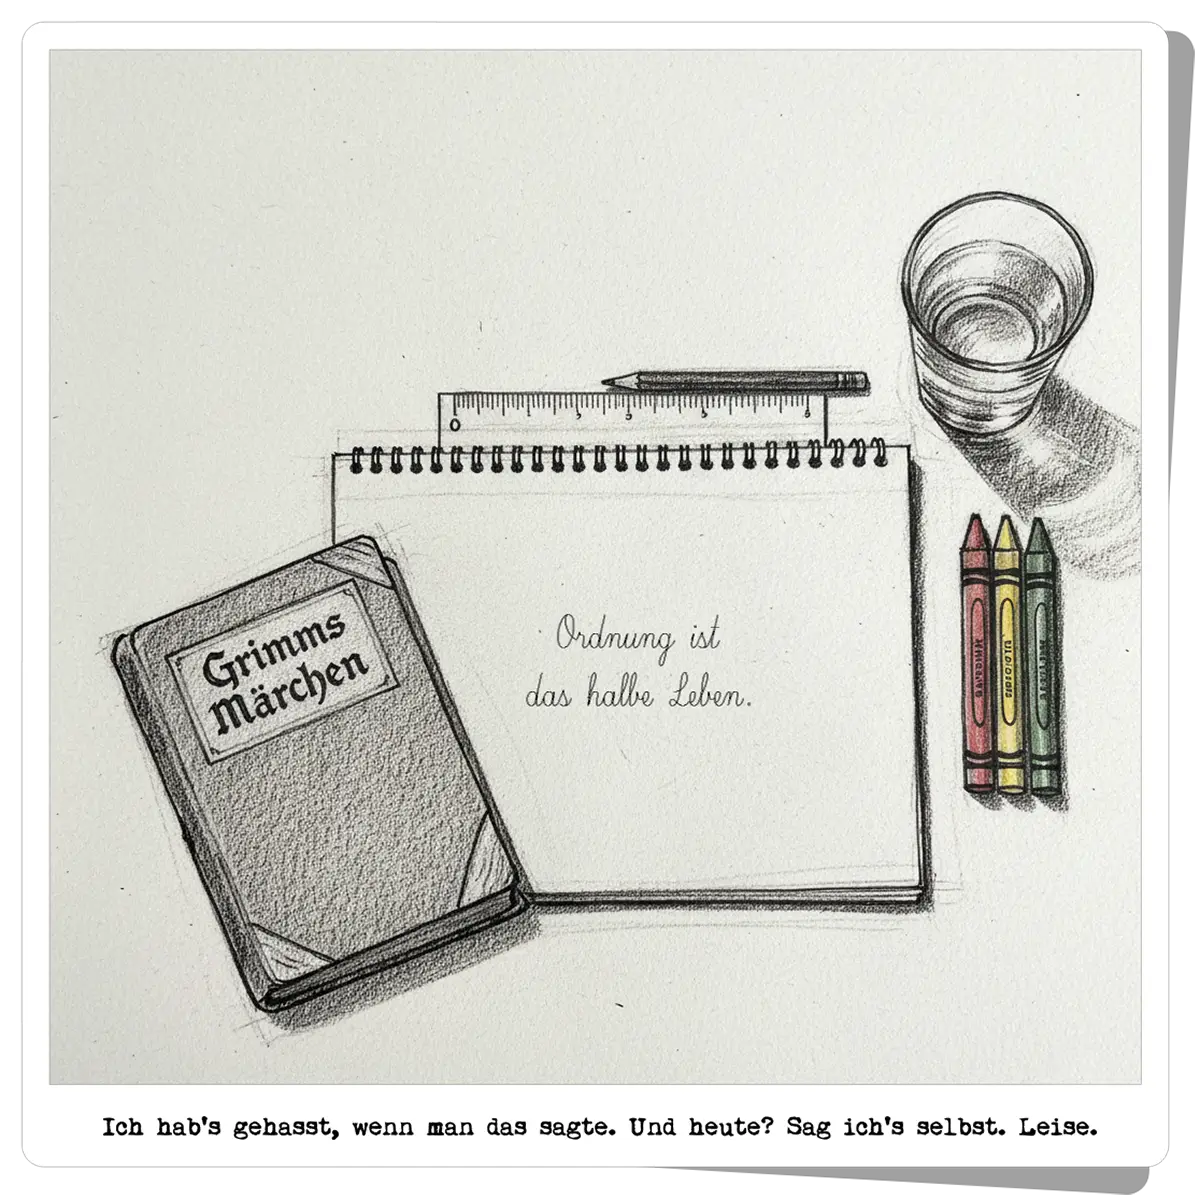 0
Grimms
Märchen
Ordnung ist
das halbe Leben.
Ich hab's gehasst, wenn man das sagte. Und heute? Sag ich's selbst. Leise.